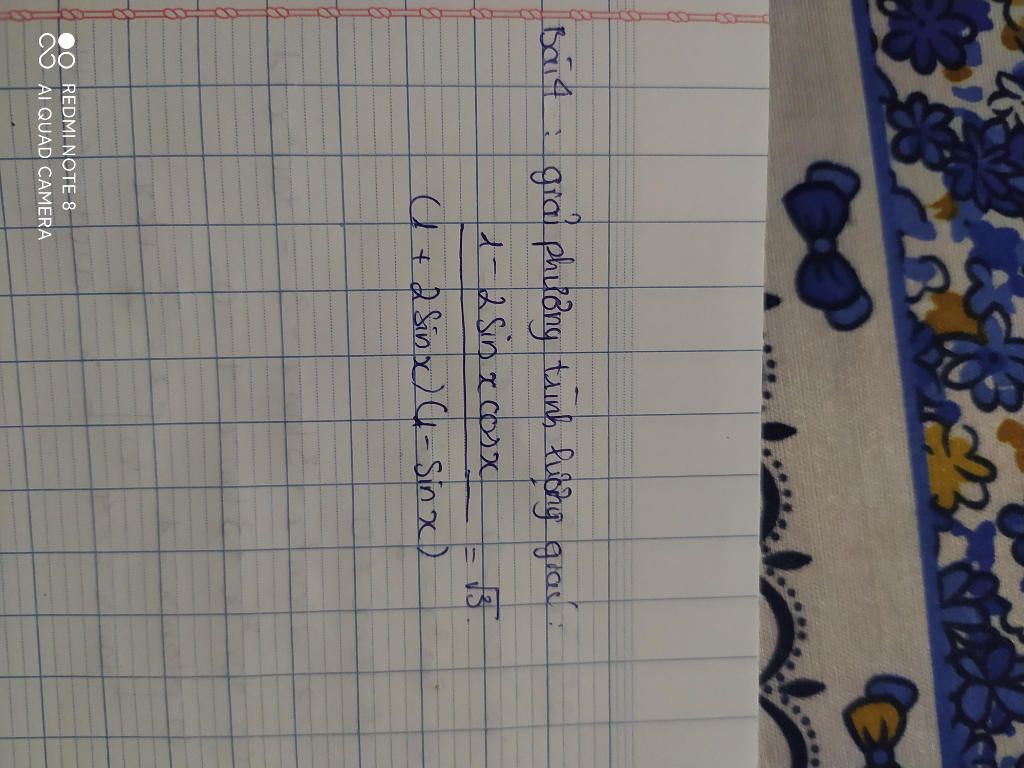 Bài 4 : giải phương trình lượng giác :
1 - 2 sin x cos x
——————— = √3
(1 + 2 sin x)(1 - sin x)
REDMI NOTE 8
AI QUAD CAMERA